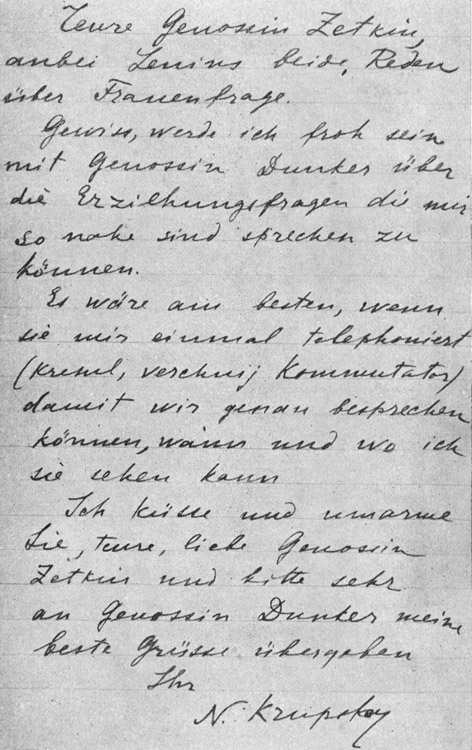 Teure Genossin Zetkin,
anbei Lenins beide Reden
über Frauenfrage.
Gewiss, werde ich froh sein
mit Genossin Dunker über
die Erziehungsfragen die mir
so nahe sind sprechen zu
können.
Es wäre am besten, wenn
sie mir einmal telephoniert
(Kreml, verchnij Kommutator)
damit wir genau besprechen
können, wann und wo ich
sie sehen kann
Ich küsse und umarme
Sie, teure, liebe Genossin
Zetkin und bitte sehr
an Genossin Dunker meine
beste Grüsse übergeben
Ihr
N. Krupskaj